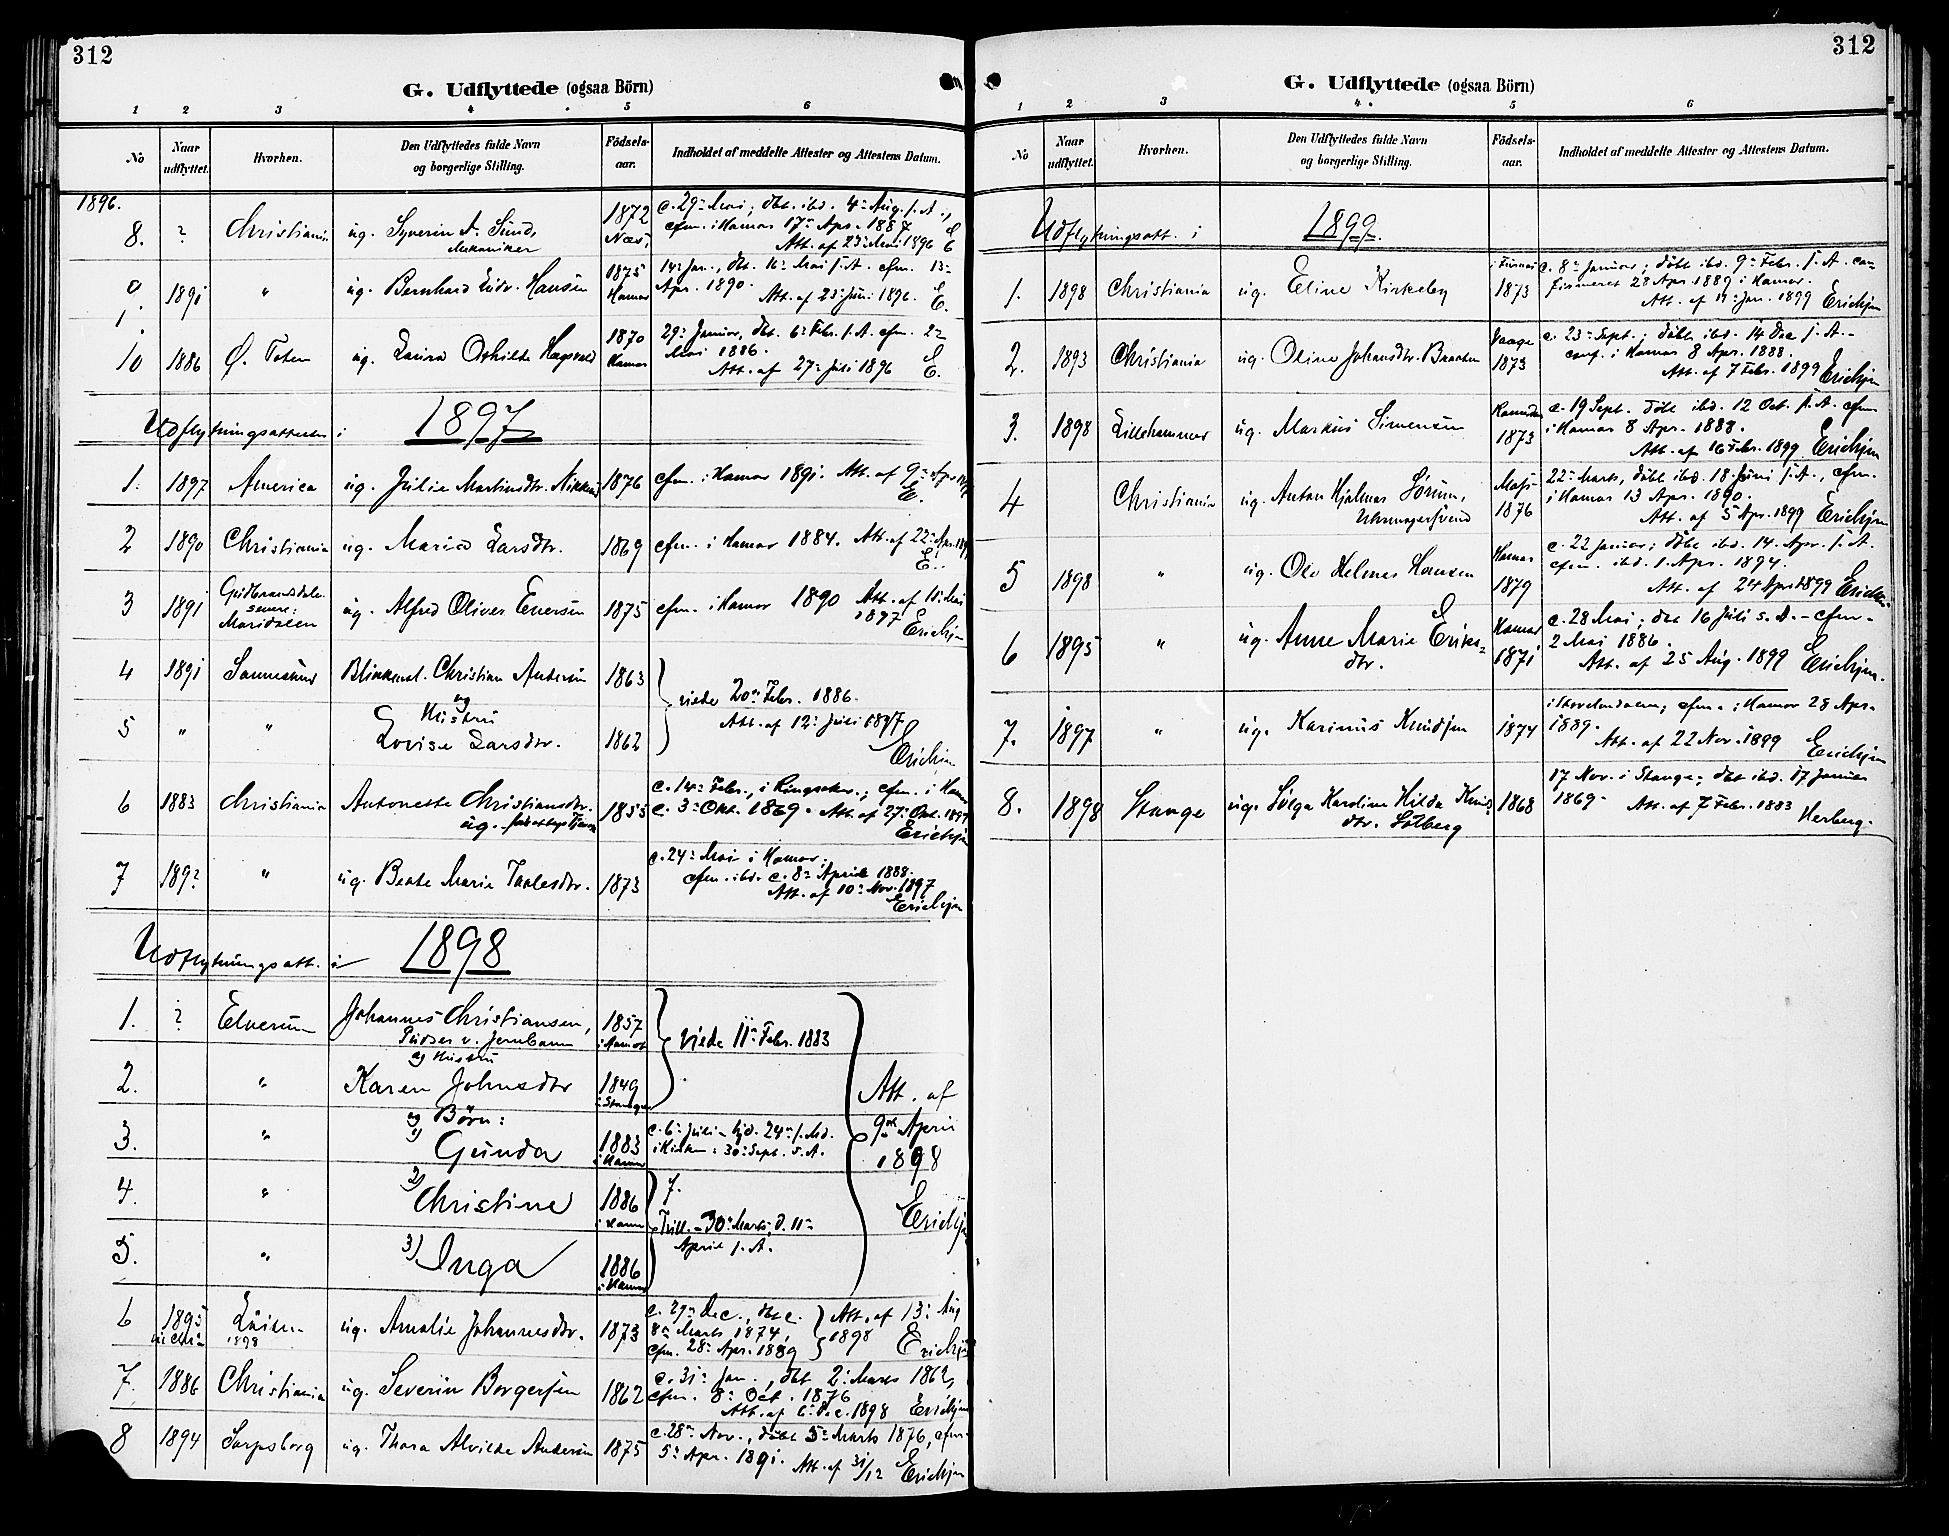 312
G. Udflyttede (ogsaa Börn)
1 2 3 4 5 6
No
Naar udflyttet.
Hvorhen.
Den Udflyttedes fulde Navn og borgerlige Stilling.
Födsels-aar.
Indholdet af meddelte Attester og Attestens Datum.
1896.
8. ? Christiania ug. Syverin A. Sund, Mekaniker 1872 Næs, c. 29de Mai; dbt. ibd. 4de Aug. s. A.,
cfm. i Hamar 17de Apr. 1887
Att. af 23de Mai 1896 E
9. 1891 " ug. Bernhard Ludv. Hansen 1875 Hamar 14de Jan., dbt. 16de Mai s. A. cfm. 13de
Apr. 1890. Att. af 23de Juni 1896. E.
10 1886 Ø. Toten ug. Laura Oshilde Hagevald 1870 Hamar 29de Januar, dbt. 6te Febr. s. A. cfm. 2den
Mai 1886.
Att. af 27de Juli 1896 E.
Udflytningsattester i 1897
1. 1897 America ug. Julie Martinsdtr. 1876 cfm. i Hamar 1891. Att. af 9de Apr 1897
E.
2 1890 Christiania ug. Maria Larsdtr. 1869 cfm. i Hamar 1884. Att. af 22de Apr. 1897
E.
3 1891 Gudbrandsdalen senere: Maridalen ug. Alfred Oliver Eversen 1875 cfm. i Hamar 1890 Att. af 11te Mai
1897 Erichsen
4 1891 Sannesund Blikkensl. Christian Andersen 1863
viede 20de Febr. 1886.
og Hustru
Att. af 12te Juli 1897
5 " " Lovise Larsdtr. 1862
Erichsen
6 1883 Christiania Antonette Christiansdtr. ug. 1855 c. 14de Febr., i Ringsaker; cfm. i Hamar
c. 3de Okt. 1869. Att. af 27de Okt. 1897
Erichsen
7 189? " ug. Beate Marie Tholesdtr. 1873 c. 24de Mai i Hamar;
cfm. ibd. c. 8de April 1888.
Att. af 10de Nov. 1897
Erichsen
Udflytningsatt. i 1898
1. ? Elverum Johannes Christiansen, Pudser v. Jernbanen 1857 i Aamot viede 11te Febr. 1883
og Hustru
2. " Karen Johnsdtr 1849 i Stange
Att. af
9de April
1898
Erichsen
og Børn:
3. " 1) Gunda 1883 i Hamar c. 6te Juli – hjd. 24de s. Md.
i Kirken: 30te Sept. s. A.
4. " 2) Christine 1886 i Hamar
Tvill. – 30te Marts, d. 11te
April s. A.
5. " 3) Inga 1886 i Hamar
6 1895 Löiten 1898 ug. Amalie Johannesdtr. 1873 c. 29de Dec., dbt c.
8de Marts 1874,
cfm. 28de Apr. 1889 Att. af 13de Aug
1898 Erichsen
7. 1886 Christiania ug. Severin Borgersen 1862 c. 31te Jan., dbt 2den Marts 1862,
cfm. 8de Oct. 1876
Att. af 6te Dec. 1898 Erichsen
8 1894 Sarpsborg ug. Thora Alvilde Andersen 1875 c. 28de Nov., döbt 5te Marts 1876, cfm.
5te Apr. 1891. Att. af 31/12 Erichsen
312
G. Udflyttede (ogsaa Börn)
1 2 3 4 5 6
No
Naar udflyttet.
Hvorhen.
Den Udflyttedes fulde Navn og borgerlige Stilling.
Födsels-aar.
Indholdet af meddelte Attester og Attestens Datum.
Udflytningsatt. i 1899.
1. 1898 Christiania ug. Eline Kirkeby i Furnes 1873 c. 8de Januar; döbt ibd. 9de Febr. s. A. con-
firmeret 28 Apr. 1889 i Hamar.
Att. af 11te Jan. 1899 Erichsen
2. 1893 Christiania ug. Oline Johansdtr. Braaten Vaage 1873 c. 23de Sept.; döbt ibd. 14 Dec s. A. –
conf. i Hamar 8 Apr. 1888.
Att. af 7 Febr. 1899 Erichsen
3. 1898 Lillehammer ug. Markus Simensen 1873 c. 19 Sept. döbt ibd. 12 Oct. s. A. cfm
i Hamar 8 Apr. 1888.
Att. af 16 Febr. 1899 Erichsen
4 Christiania ug. Anton Hjalmar Sörum, Uhrmagersvend 1876 22de Marts, döbt ibd. 18 Juni s. A., cfm.
i Hamar 13 Apr. 1890.
Att. af 5 Apr. 1899 Erichsen
5 1898 " ug. Olo Helmer Hansen Hamar 1879 c. 22 Januar; döbt ibd. 14. Apr. s. A.
cfm. ibd. 1. Apr. 1894.
Att. af 24 Apr 1899 Erichsen
6 1895 " ug. Anne Marie Eriks=
dtr. Hamar 1871 c. 28 Mai; dbt 16 Juli s. A. – cfm.
2 Mai 1886.
Att. af 25 Aug. 1899 Erichsen.
7. 1897 " ug. Karinus Knudsen 1874 i Storelvedalen; cfm. i Hamar 28 Apr.
1889.
Att. af 22 Nov. 1899 Erichsen
8. 1898 Stange ug. Helga Karoline Hilda Knuds=
dtr. Solberg 1868 17 Nov. i Stange; dbt ibd. 17 Januar
1869. Att. af 7 Febr. 1883
Herberg.